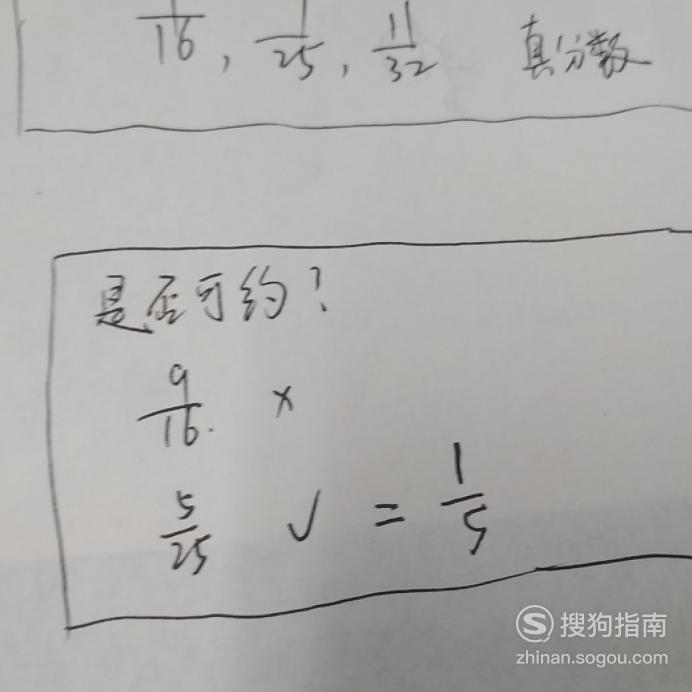 /16, /25, 11/32 真分数
是否可约?
9/16. ×
5/25 √ = 1/5
搜狗指南
zhinan.sogou.com